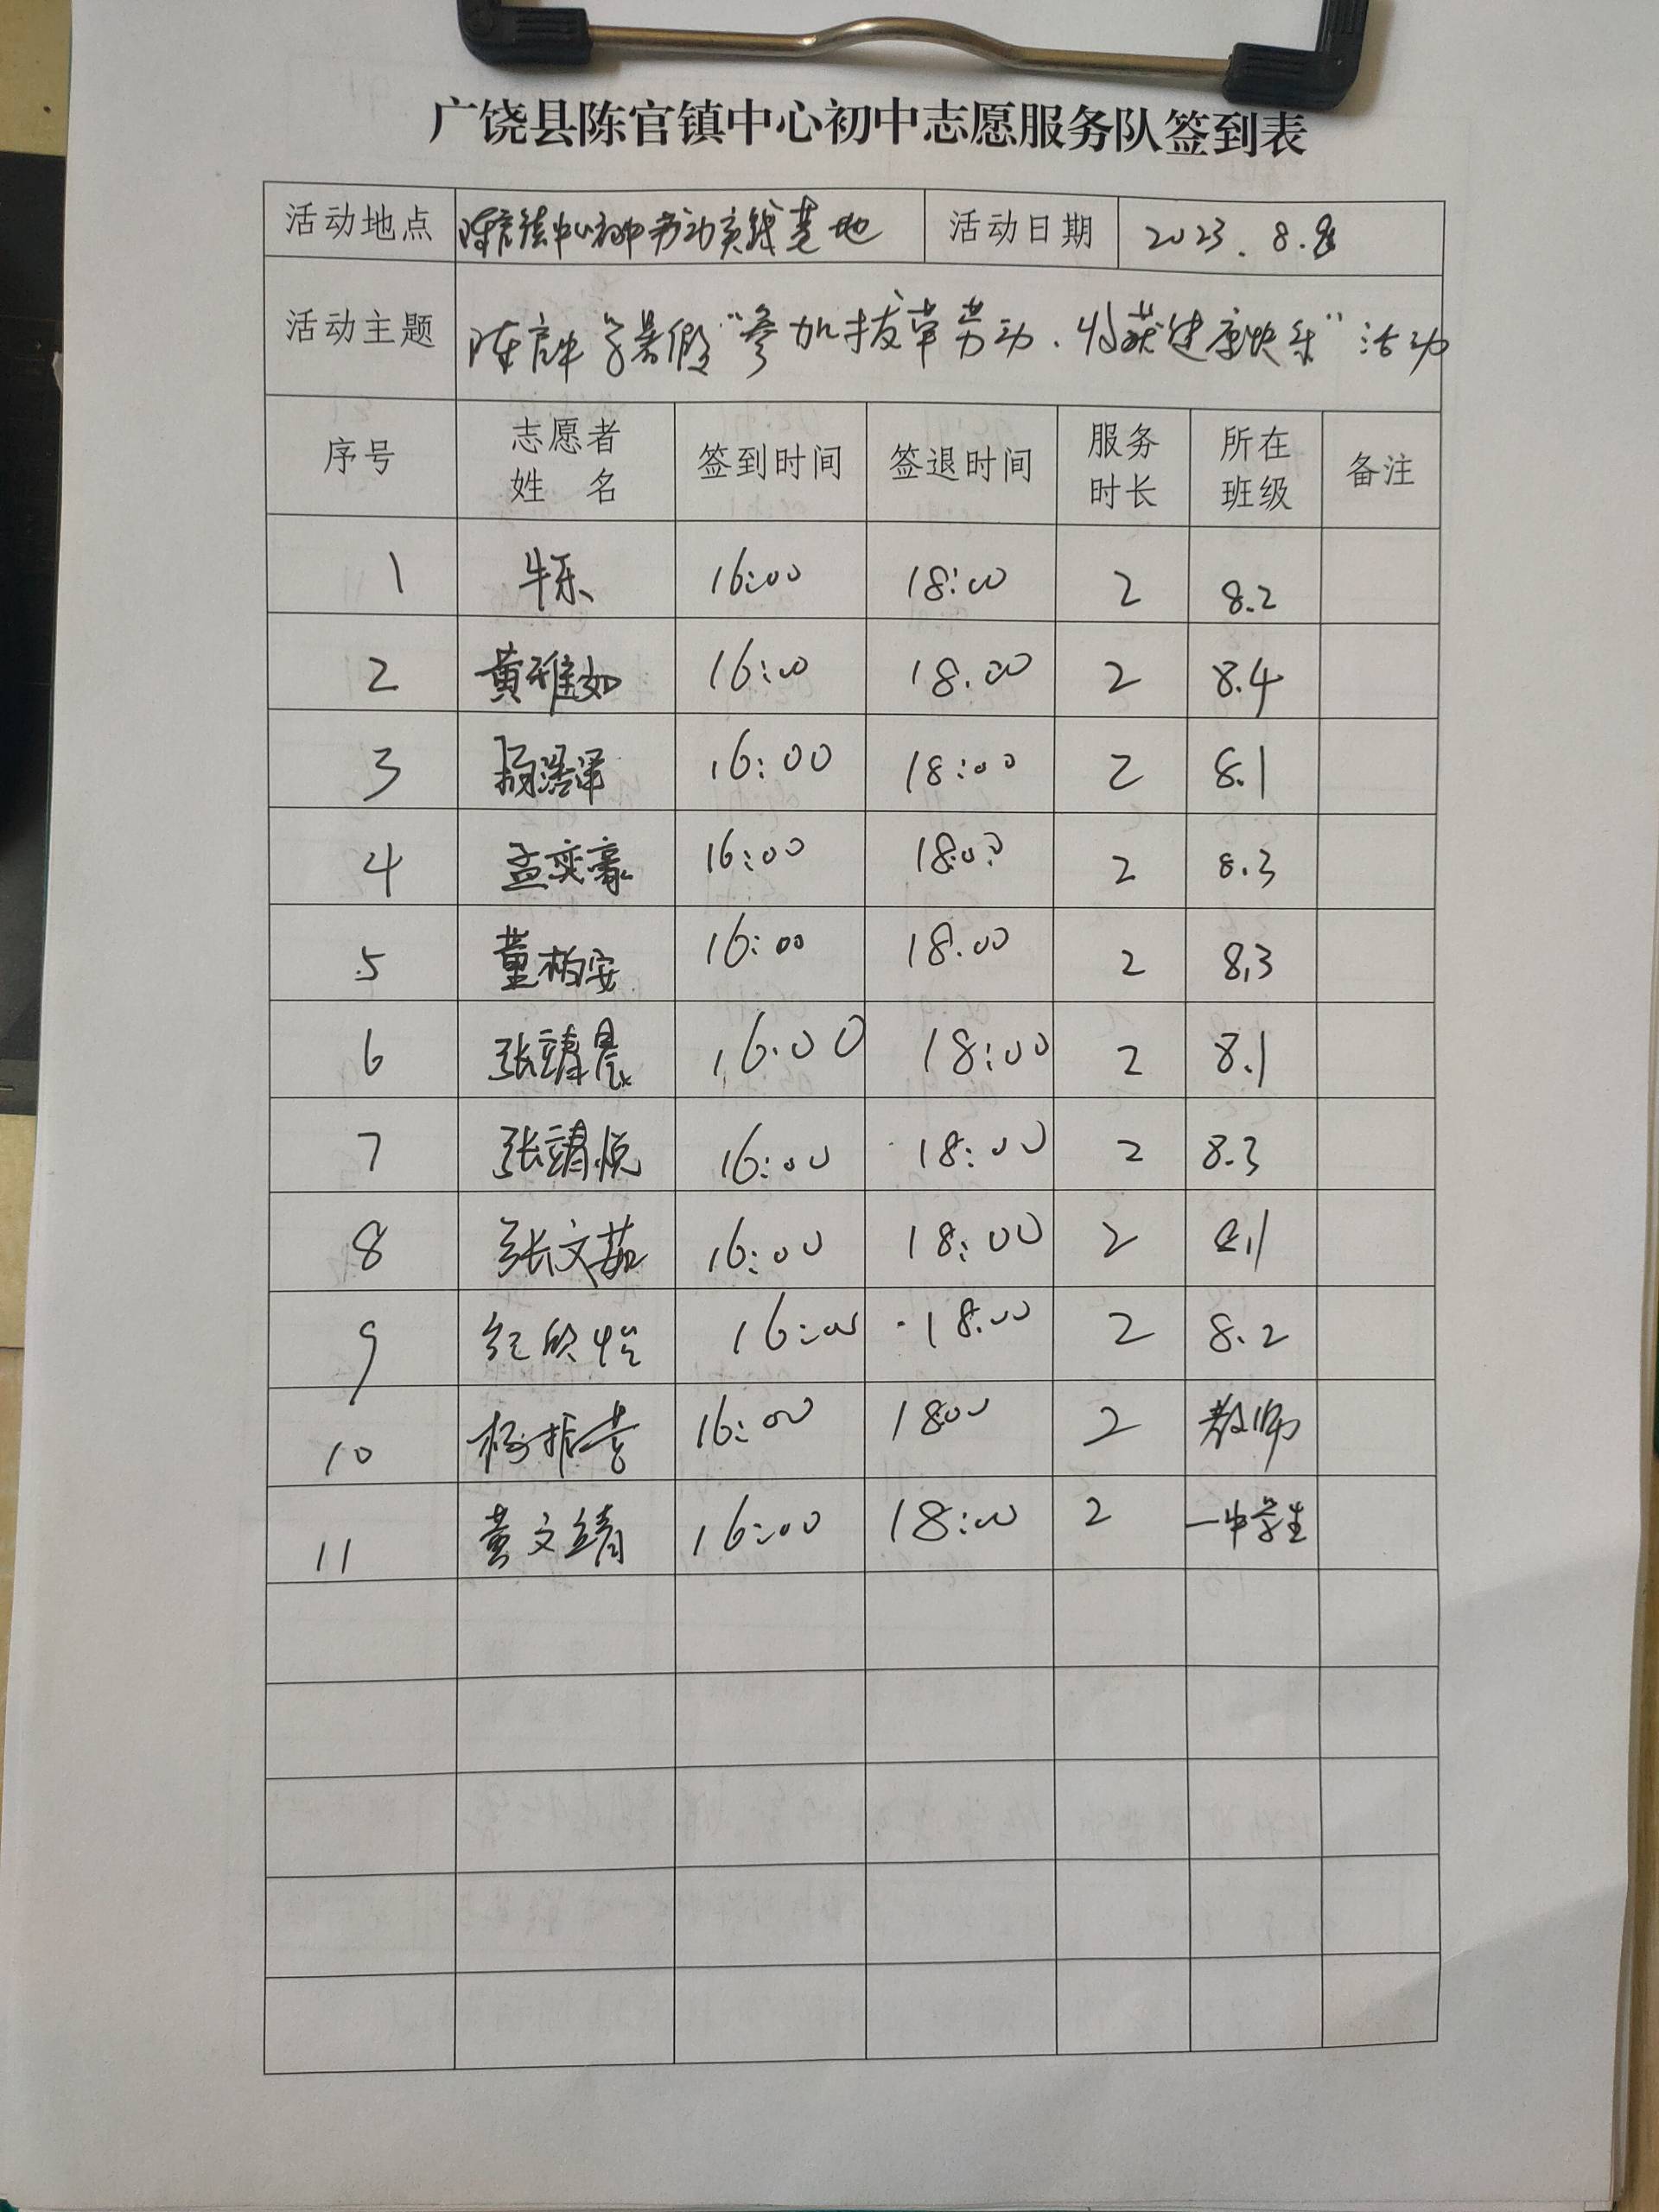 广饶县陈官镇中心初中志愿服务队签到表
活动地点 陈官镇中心初中劳动实践基地 活动日期 2023.8.8
活动主题 陈官中学暑假“参加拔草劳动.收获健康快乐”活动
序号 志愿者姓名 签到时间 签退时间 服务时长 所在班级 备注
1 牛乐 16:00 18:00 2 8.2
2 黄雅如 16:00 18.00 2 8.4
3 杨浩泽 16:00 18:00 2 8.1
4 孟奕豪 16:00 18:00 2 8.3
5 董柏安 16:00 18.00 2 8.3
6 张靖晨 16.00 18:00 2 8.1
7 张靖悦 16:00 18:00 2 8.3
8 张文茹 16:00 18:00 2 8.1
9 16:00 18:00 2 8.2
10 16:00 1800 2 教师
11 黄文靖 16:00 18:00 2 一中学生